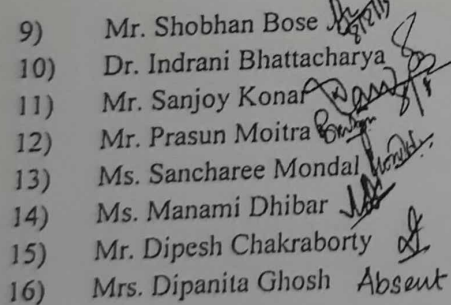 9) Mr. Shobhan Bose
10) Dr. Indrani Bhattacharya
11) Mr. Sanjoy Konar
12) Mr. Prasun Moitra
13) Ms. Sancharee Mondal
14) Ms. Manami Dhibar
15) Mr. Dipesh Chakraborty
16) Mrs. Dipanita Ghosh Absent